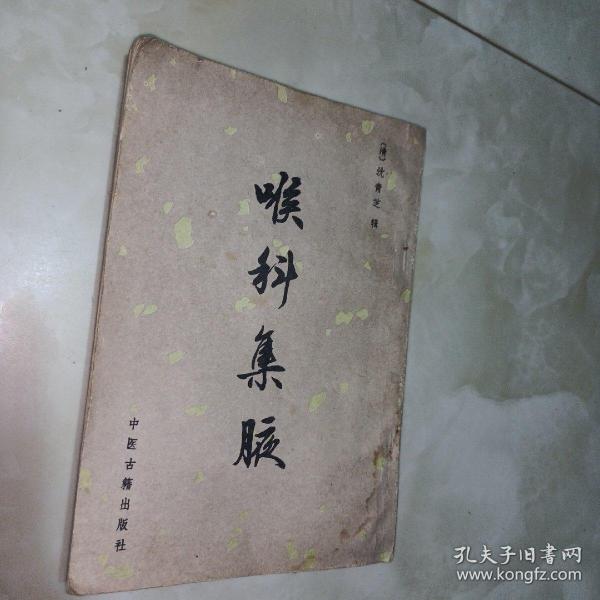 〔清〕沈青芝 辑
喉科集腋
中医古籍出版社
孔夫子旧书网
www.kongfz.com